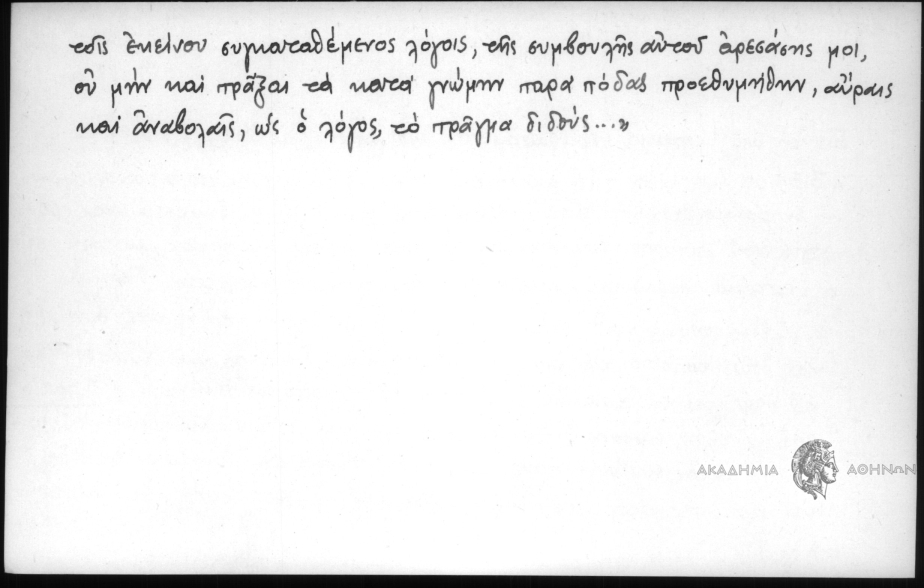 τοῖς ἐκείνου συγκαταθέμενος λόγοις, τῆς συμβουλῆς αὐτοῦ ἀρεσάσης μοι,
οὐ μὴν καὶ πρᾶξαι τὰ κατὰ γνώμην παρὰ πόδας προεθυμήθην, αὔραις
καὶ ἀναβολαῖς, ὡς ὁ λόγος, τὸ πρᾶγμα διδούς...»
ΑΚΑΔΗΜΙΑ ΑΘΗΝΩΝ